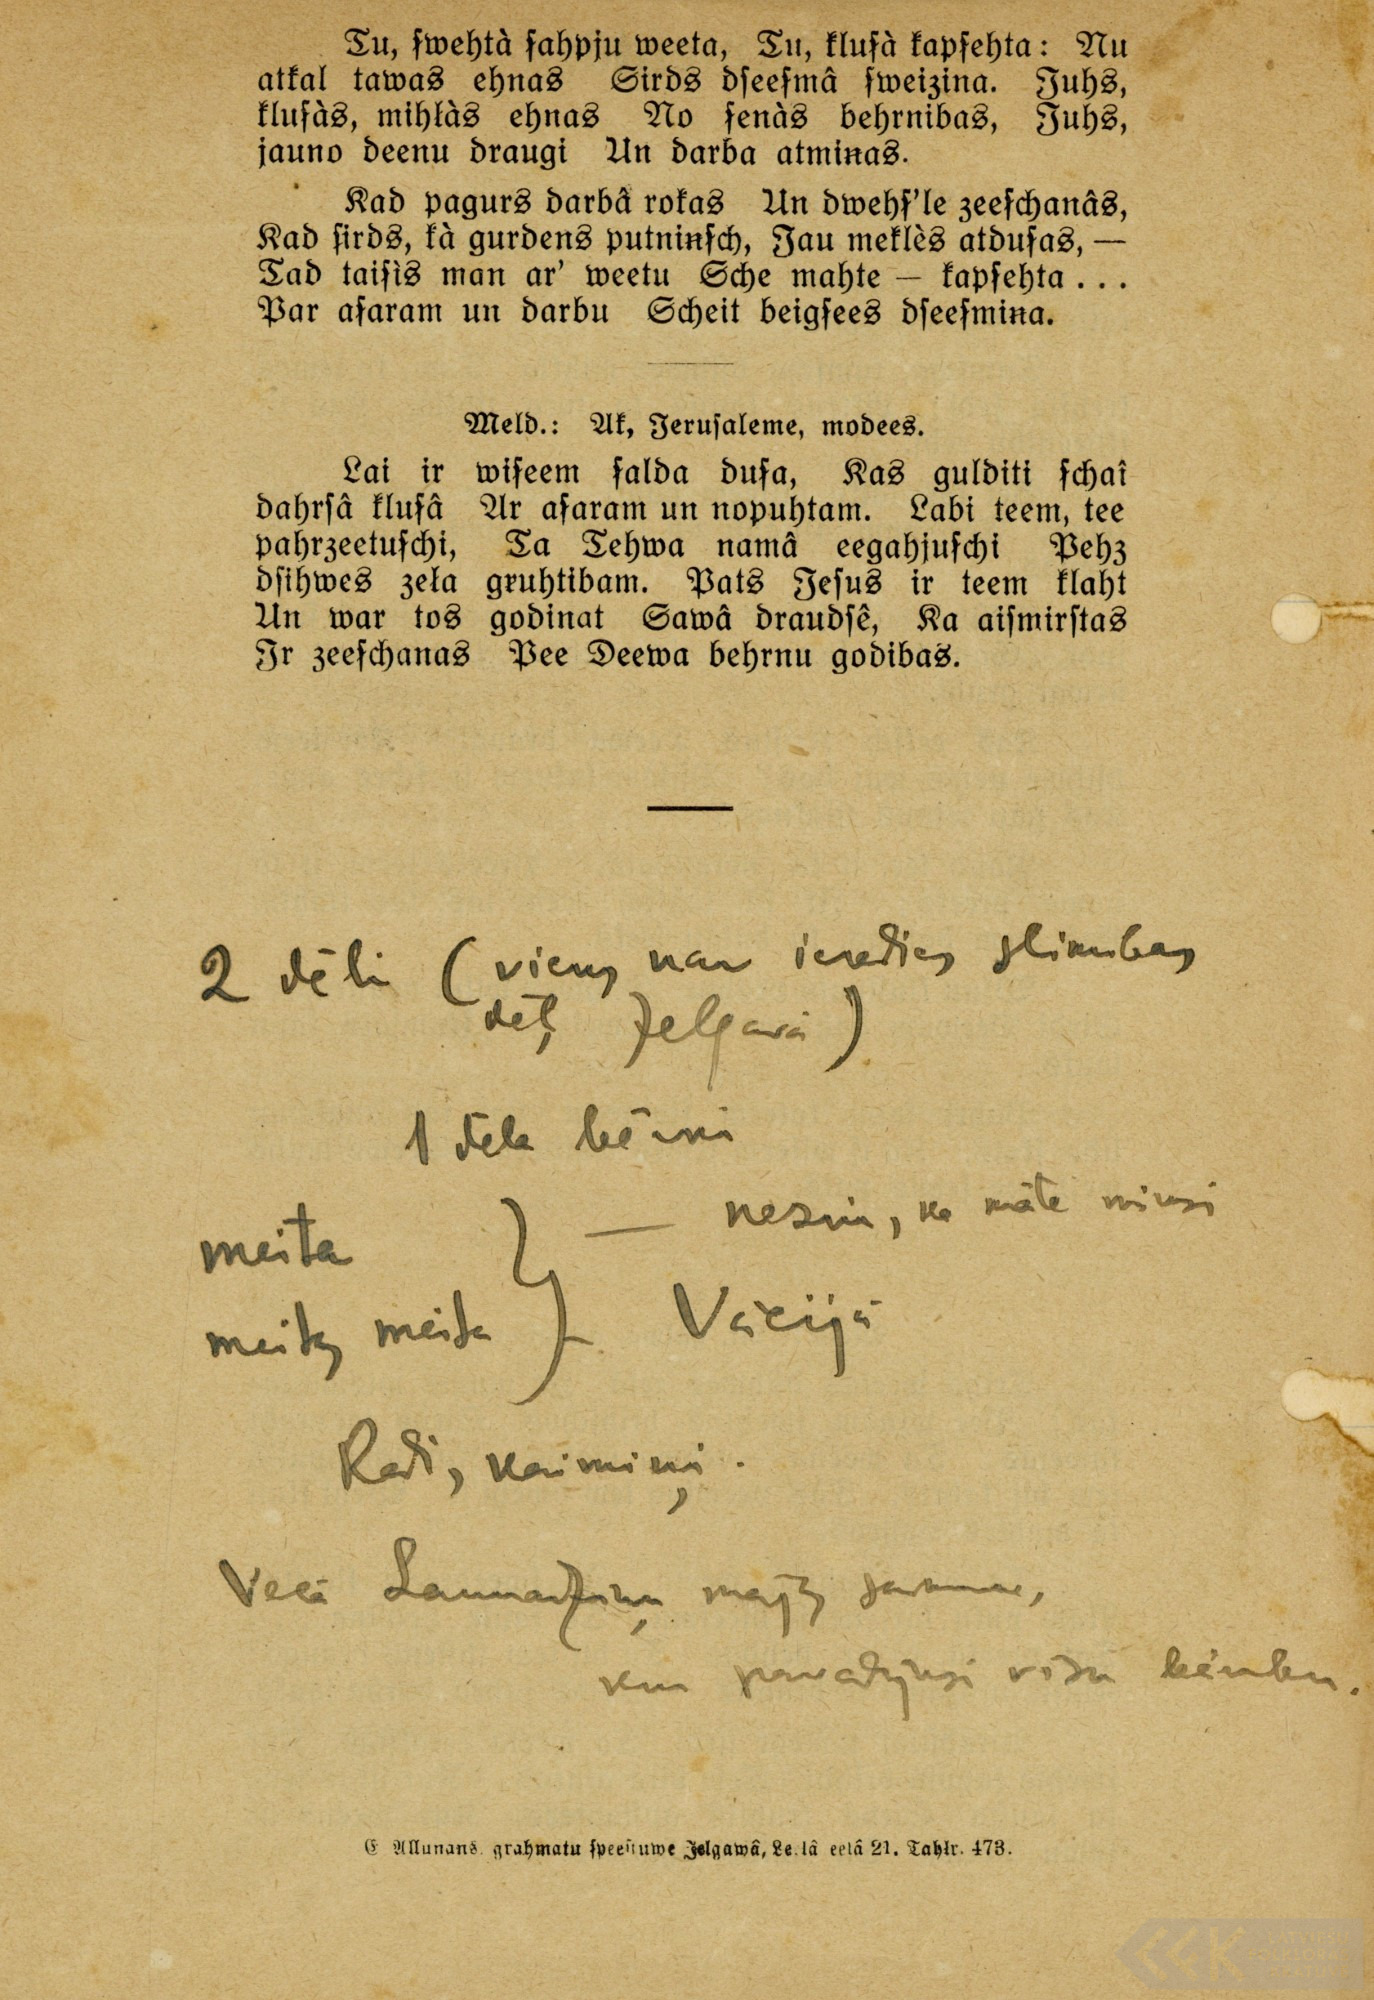 Tu, ſwehtà ſahpju weeta, Tu, kluſà kapſehta: Nu
atkal tawas ehnas Sirds dſeeſmâ ſweizina. Juhs,
kluſàs, mihłàs ehnas No ſenàs behrnibas, Juhs,
jauno deenu draugi Un darba atmiꞥas.
Kad pagurs darbâ rokas Un dwehſ'le zeeſchanâs,
Kad ſirds, kà gurdens putniꞥſch, Jau meklès atduſas, —
Tad taiſis man ar' weetu Sche mahte — kapſehta . . .
Par aſaram un darbu Scheit beigſees dſeeſmiꞥa.
Meld.: Ak, Jeruſaleme, modees.
Lai ir wiſeem ſalda duſa, Kas gulditi ſchaî
dahrſâ kluſâ Ar aſaram un nopuhtam. Labi teem, tee
pahrzeetuſchi, Ta Tehwa namâ eegahjuſchi Pehz
dſihwes zeła gꞧuhtibam. Pats Jeſus ir teem klaht
Un war tos godinat Sawâ draudſê, Ka aiſmirſtas
Jr zeeſchanas Pee Deewa behrnu godibas.
2 dēli (viens nav ieradies slimības
dēļ Jelgavā)
1 dēla bērni
meita } — nezin, ka māte mirusi
meitas meita Vācijā
Radi, kaimiņi.
Vecā Launadziņu mājas
kur pavadījusi visu bērnību.
E Allunans. grahmatu ſpeeſtuwe Jelgawâ, Le.lâ eelâ 21. Tahlr. 473.